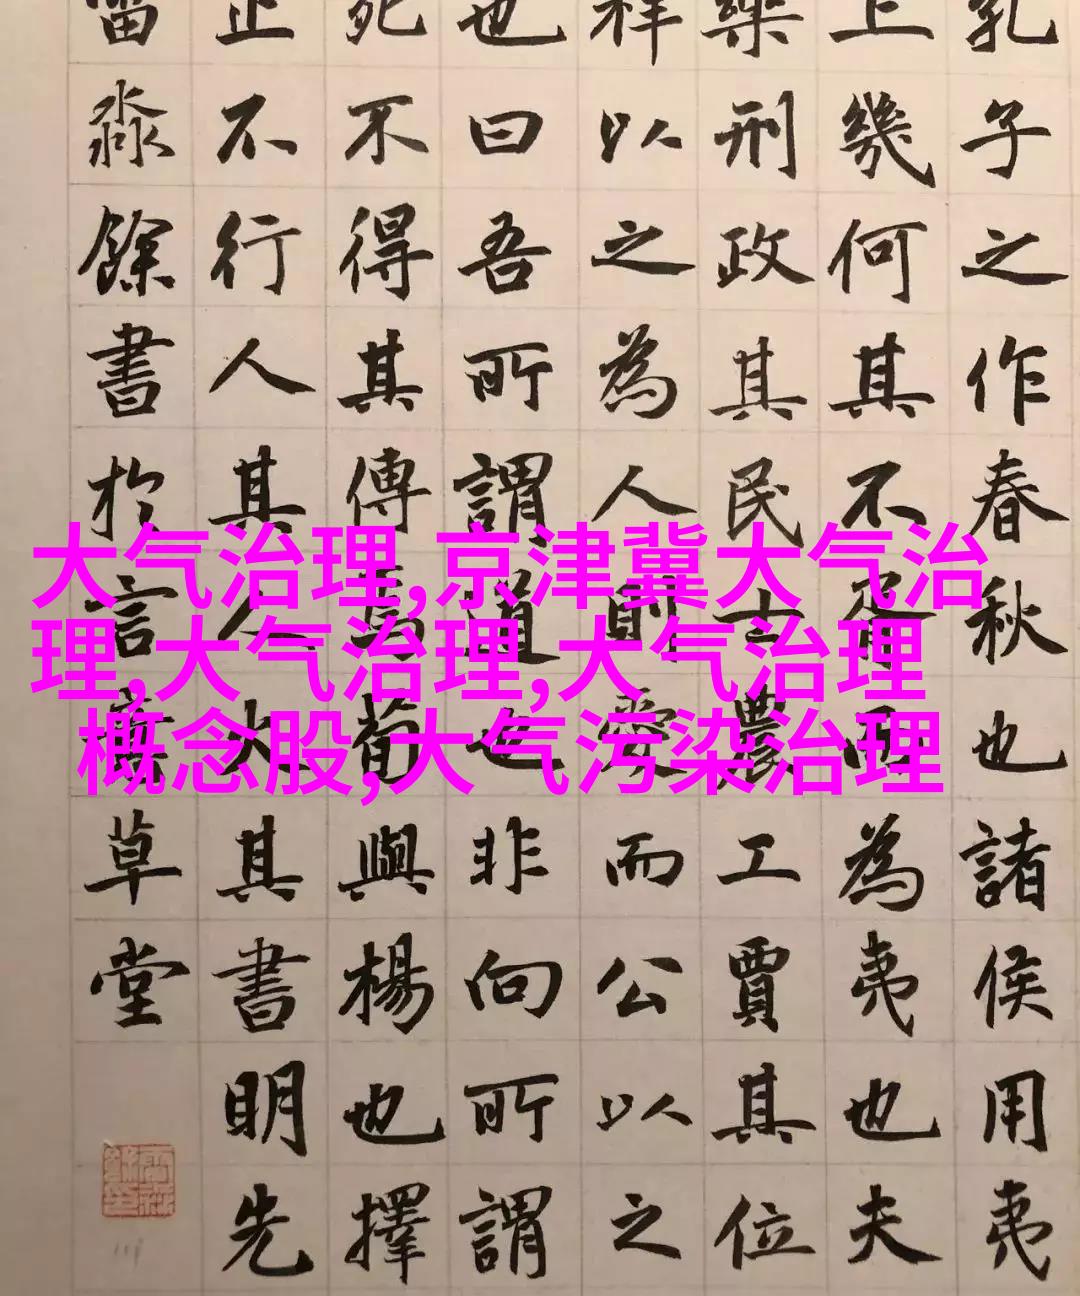 孔子之作春秋也諸侯用夷
上幾何其不胥而為夷也夫
樂刑政其民士農工賈其位
祥以之為人則愛而公以之
也曰吾所謂道也非向所謂
死不得其傳焉荀與楊也擇
止不行人其人火其書明先
淼餘書於言草堂
大气治理,京津冀大气治
理,大气治理,大气治理
概念股,大气污染治理